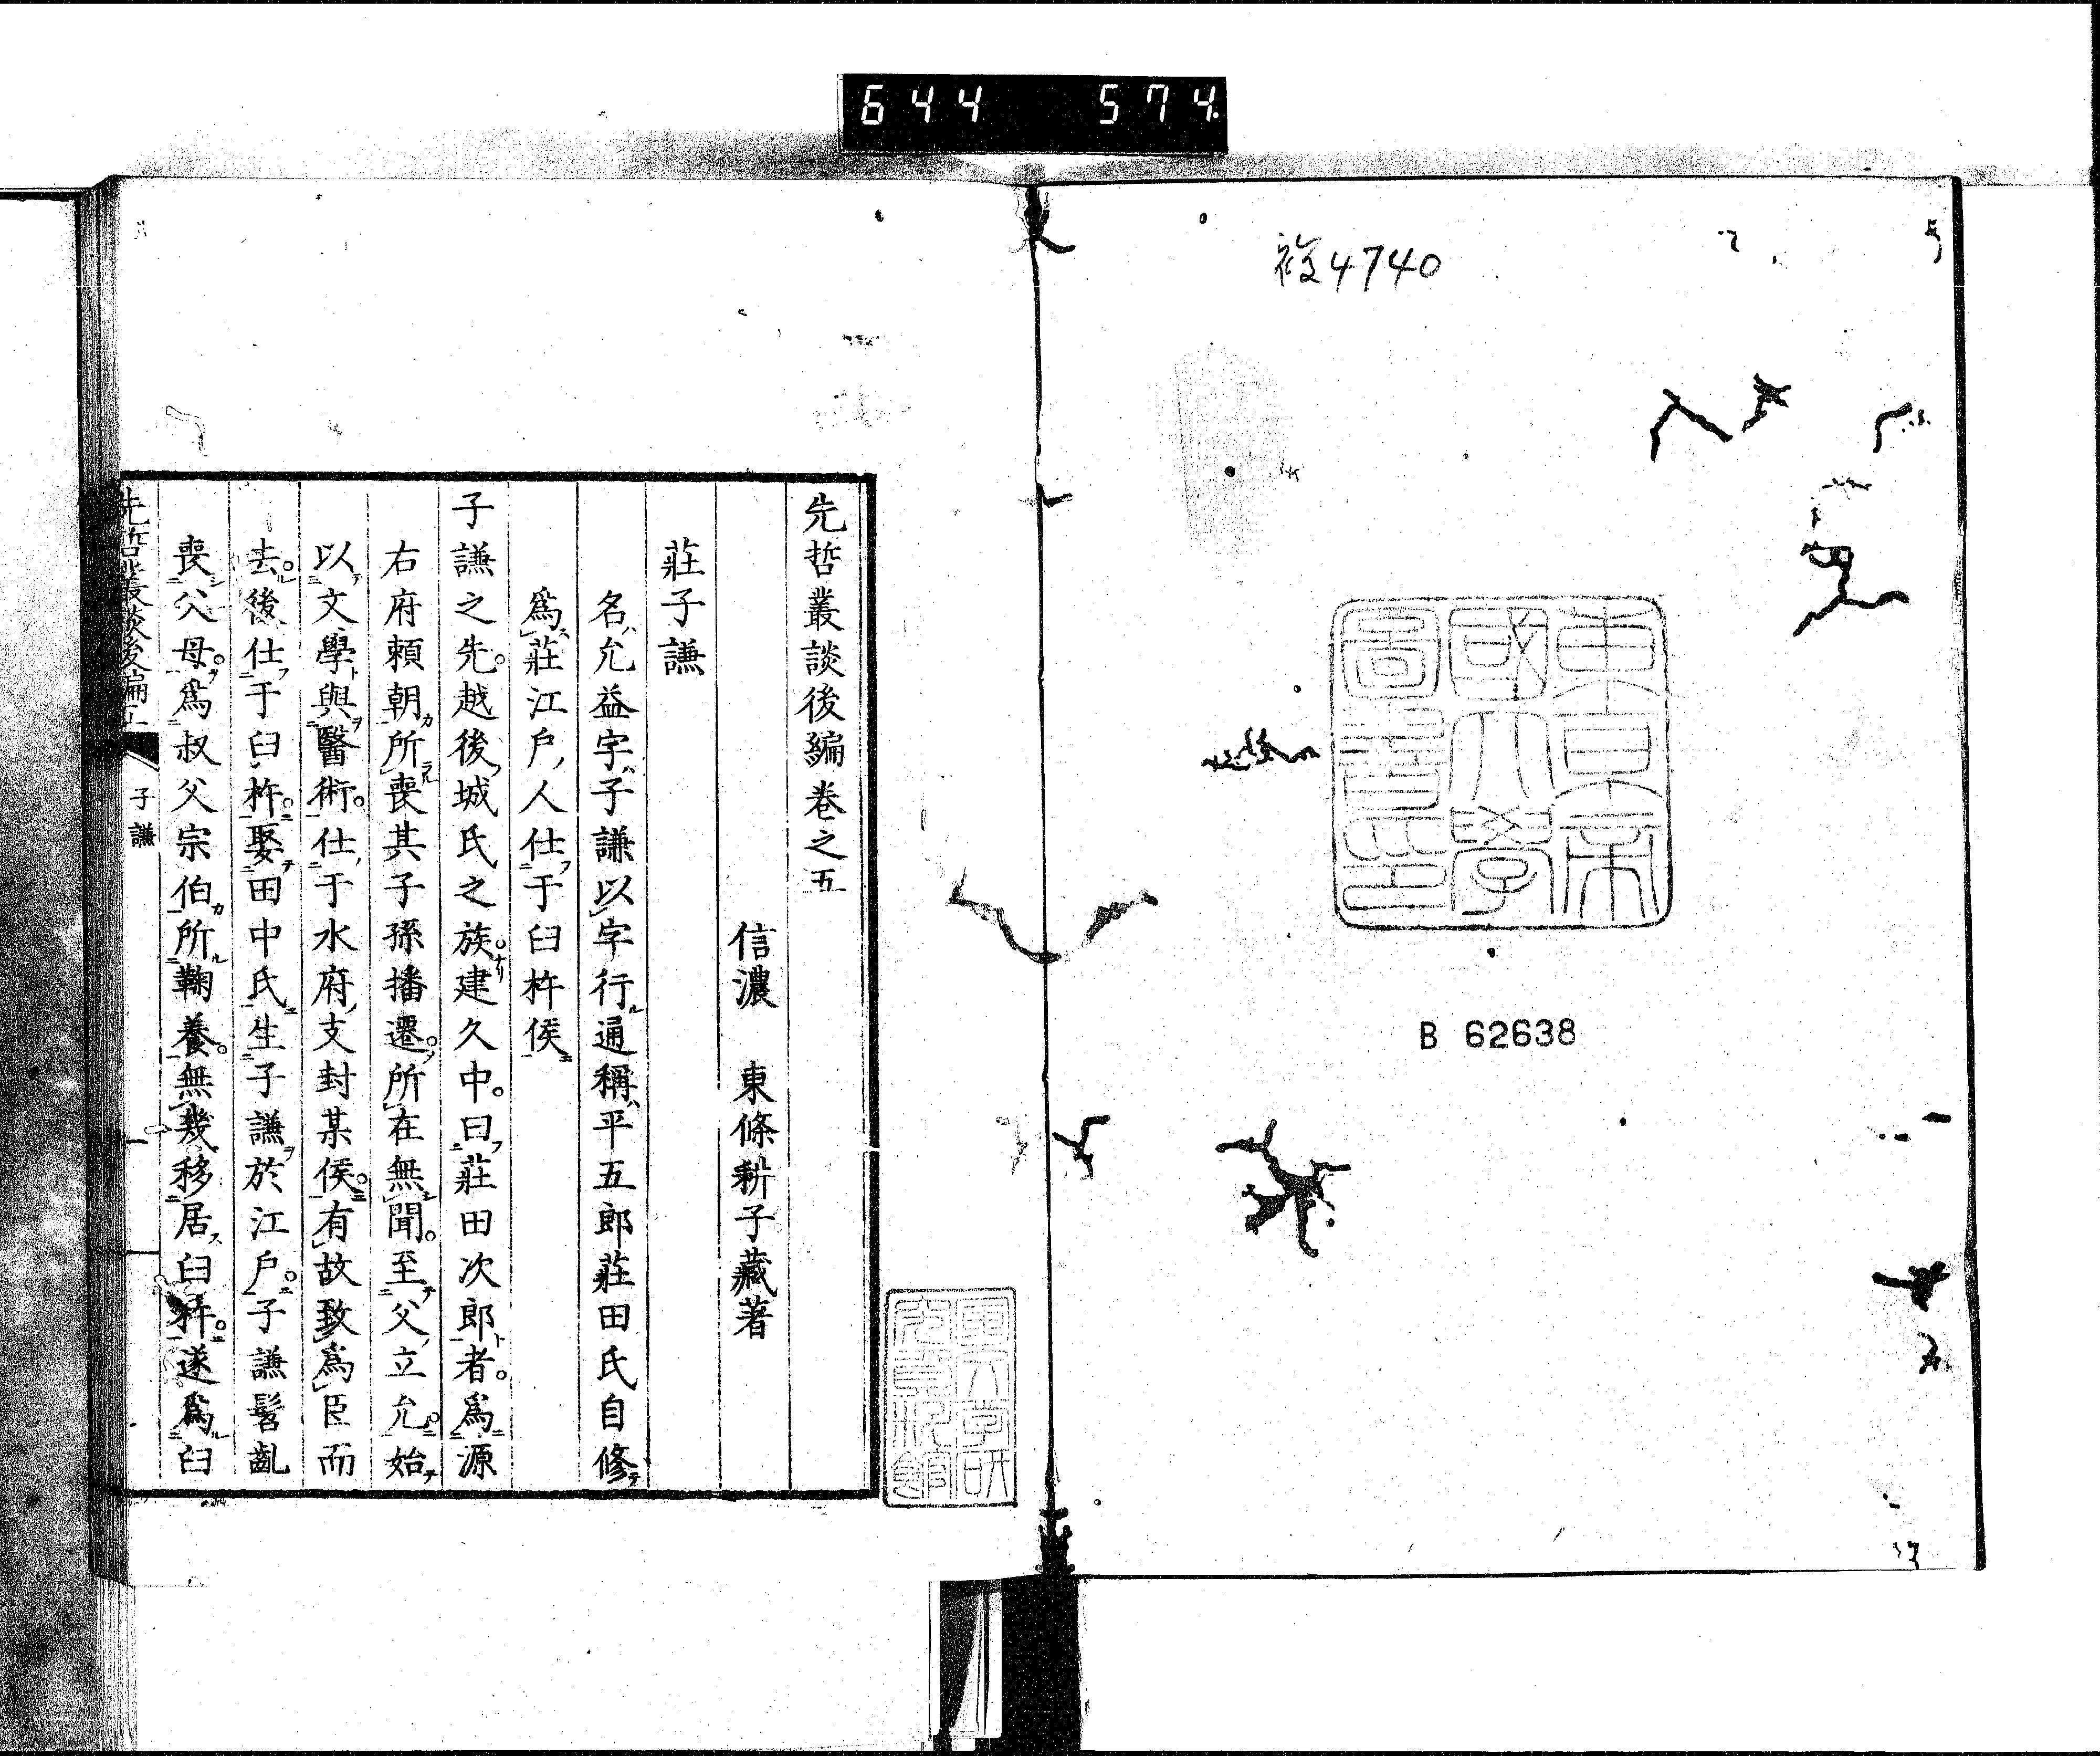 644 574.
複4740
東京帝
國大學
圖書印
B 62638
先哲叢談後編卷之五
信濃 東條耕子藏著
莊子謙
名允益字子謙以字行通稱平五郎莊田氏自修
爲莊江戶人仕于臼杵侯
子謙之先越後城氏之族建久中曰莊田次郎者爲源
右府賴朝所喪其子孫播遷所在無聞至父立允始
以文學與醫術仕于水府支封某侯有故致爲臣而
去後仕于臼杵娶田中氏生子謙於江戶子謙髫齔
喪父母爲叔父宗伯所鞠養無幾移居臼杵遂爲臼
先哲叢談後編五
子謙